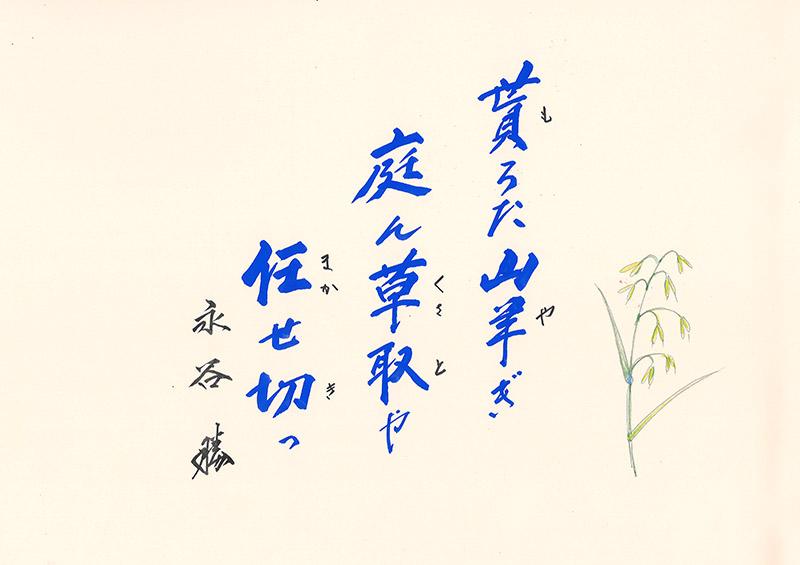 貰ろた山羊ぎ
も や
庭ん草取や
くさ と
任せ切っ
まか き
永谷勝